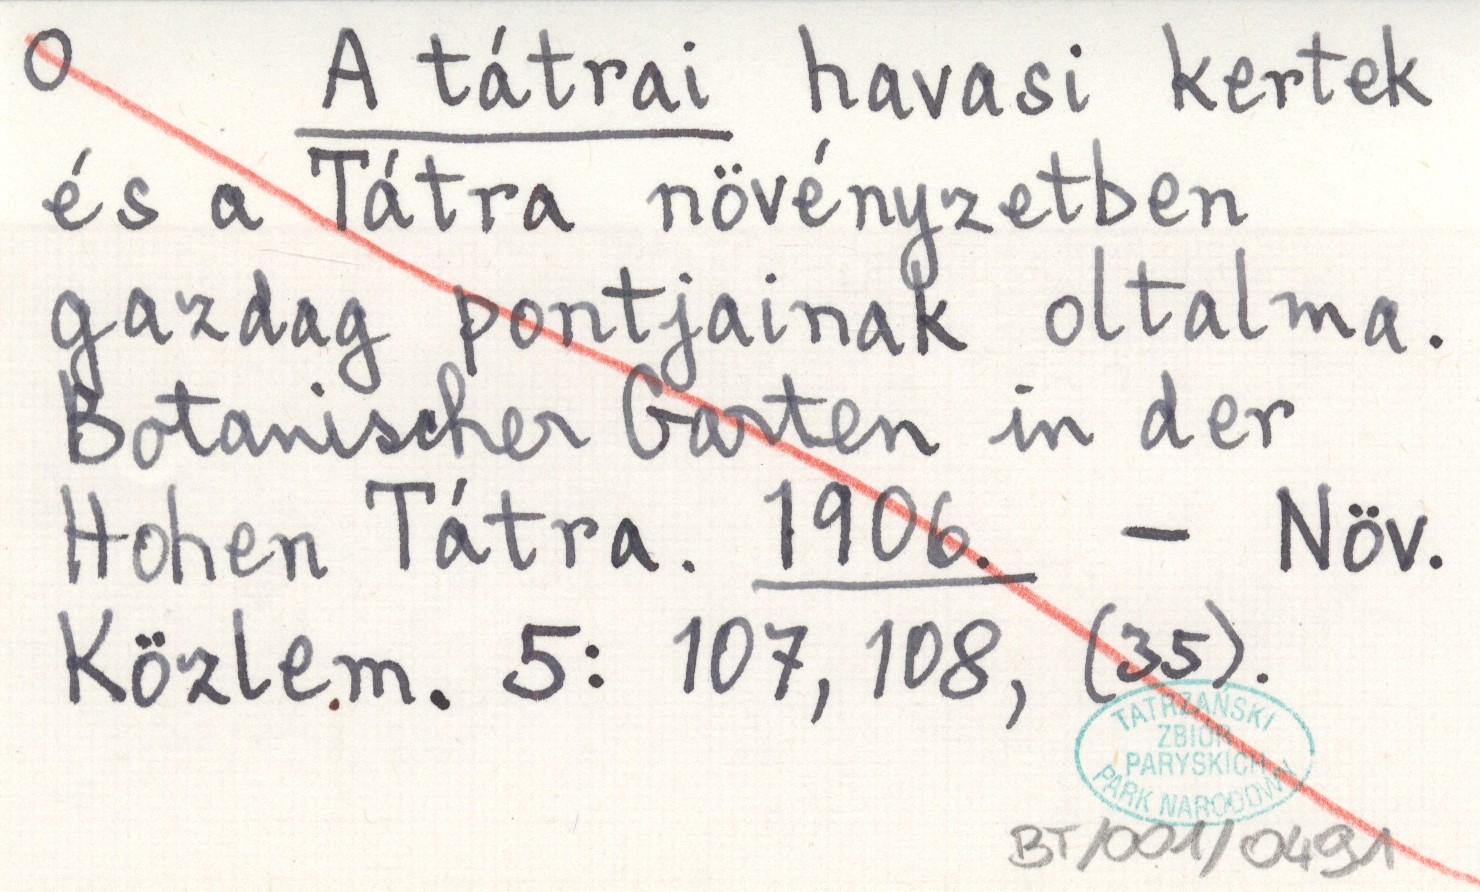 O A tátrai havasi kertek
és a Tátra növényzetben
gazdag pontjainak oltalma.
Botanischer Garten in der
Hohen Tátra. 1906. – Növ.
Közlem. 5: 107, 108, (35).
TATRZAŃSKI
ZBIÓR
PARYSKICH
PARK NARODOWY
BT/001/0491